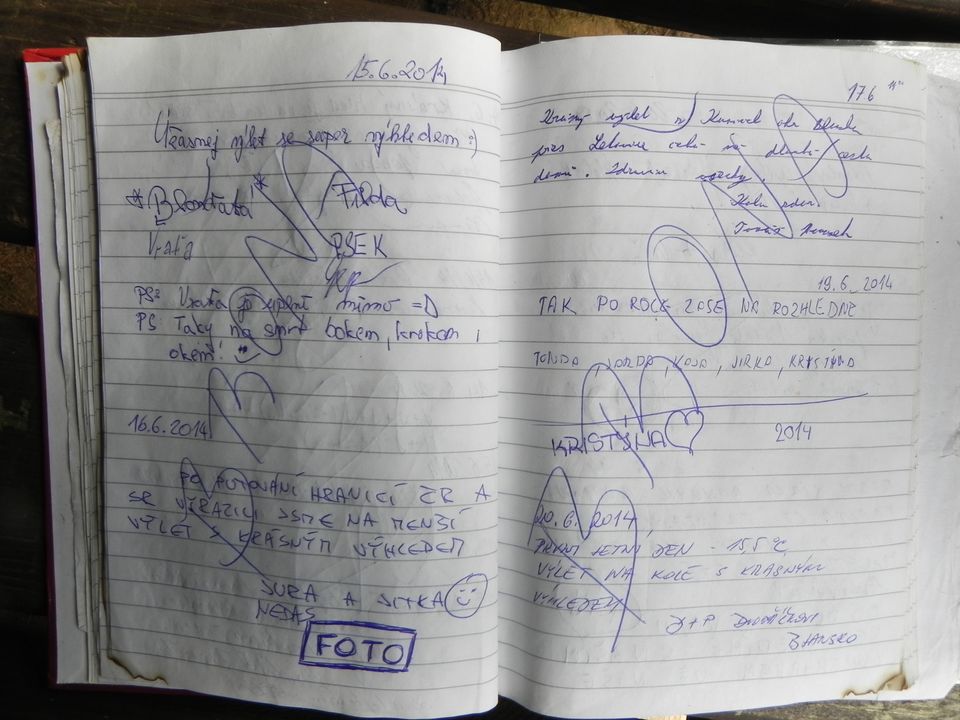 15.6.2014
Úžasnej výlet se super výhledem :)
Filda
Vraťa PSEK
PS: Vraťa je úplně mimo =D
PS Taky na smrt bokem, krokem,
okem!
16.6.2014
PO PUTOVÁNÍ HRANICÍ ČR A
SR VYRAZILI JSME NA MENŠÍ
VÝLET S KRÁSNÝM VÝHLEDEM
JURA A JITKA
NEDAS
FOTO
176
Krásný výlet
přes
domů. Zdravím všechny.
Kolu zdar
Tomáš
19.6.2014
TAK PO ROCE ZASE NA ROZHLEDNĚ
TONDA, JARDA, KÁJA, JIRKA, KRISTÝNA
KRISTÝNA 2014
20.6.2014
PRVNÍ LETNÍ DEN - 15,5 °C
VÝLET NA KOLE S KRÁSNÝM
VÝHLEDEM
J+P
BLANSKO